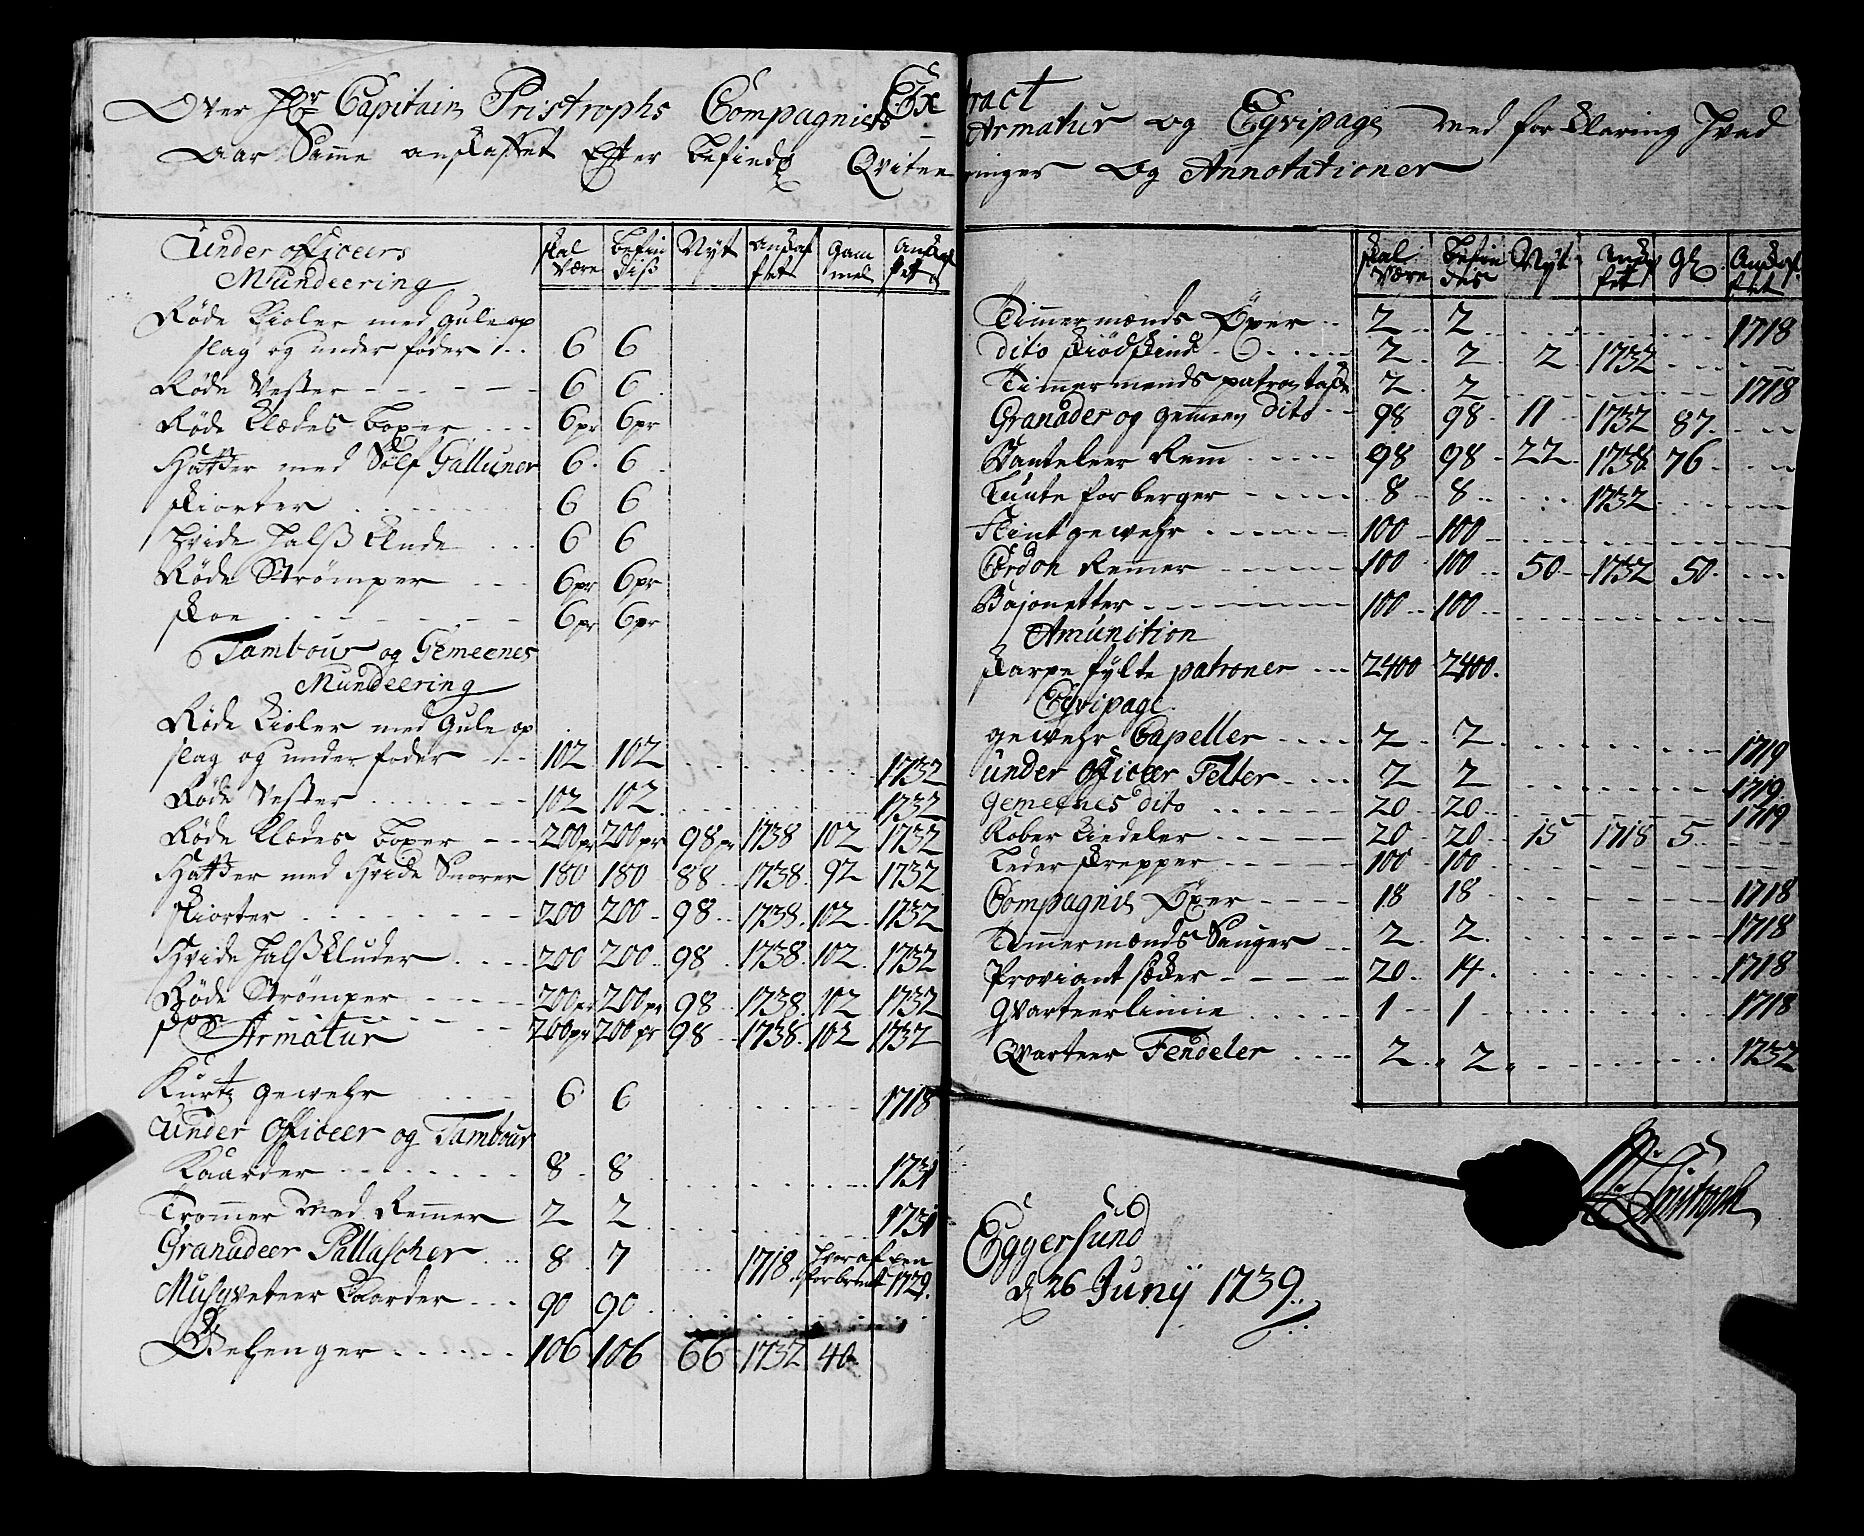 Extract
Over Hr Capitain Pristrophs Compagnies Armatur og Eqvipage med forklaring Hvad
Aar Samme anskaffet Efter befindende Qviteringer Og Annotationer
Under officeers Mundeering | skal være | befindiß | Nÿt | anskaffet | gammel | anskaffet
Røde Kioler med gule op
slag og under foder | 6 | 6
Røde Vester | 6 | 6
Røde Klædes boxer | 6 pr | 6 pr
Hatter med Sølf Galluner | 6 | 6
skiorter | 6 | 6
Hvide Halß klude | 6 | 6
Røde Strømper | 6 pr | 6 pr
skoe | 6 pr | 6 pr
Tambour og Gemeenes
Mundeering
Røde Kioler med Gule op
slag og under foder | 102 | 102 | 1732
Røde Vester | 102 | 102 | 1732
Røde Klædes boxer | 200 pr | 200 pr | 98 pr | 1738 | 102 | 1732
Hatter med Hvide Snorer | 180 | 180 | 88 | 1738 | 92 | 1732
skiorter | 200 | 200 | 98 | 1738 | 102 | 1732
Hvide Halßkluder | 200 | 200 | 98 | 1738 | 102 | 1732
Røde Strømper | 200 pr | 200 pr | 98 | 1738 | 102 | 1732
skoe | 200 pr | 200 pr | 98 | 1738 | 102 | 1732
Armatur
Kurtz gewehr | 6 | 6 | 1718
Under Officeer og Tambour
Kaarder | 8 | 8 | 1731
Trommer med Remmer | 2 | 2 | 1731
Granadeer Pallascher | 8 | 7 | 1718 | Hvoraf een forbrent 1729
Musqveteer Kaarder | 90 | 90
Gehenger | 106 | 106 | 66 | 1732 | 40
skal være | befindes | Nÿt | Anskaffet | gl | Anskaffet
Timmermænds Öxer | 2 | 2 | 1718
dito skiødskind | 2 | 2 | 2 | 1732
Timmermends patrontaske | 2 | 2 | 1718
Granader og gemeen dito | 98 | 98 | 11 | 1732 | 87
Banteleer Rem | 98 | 98 | 22 | 1738 | 76
Lunte forberger | 8 | 8 | 1732
Flint gewehr | 100 | 100
Cordon Remer | 100 | 100 | 50 | 1732 | 50
Bajonetter | 100 | 100
Amunition
skarpe fylte patroner | 2400 | 2400
Eqvipage
gewehr Capeller | 2 | 2 | 1719
under Officeer Telter | 2 | 2 | 1719
Gemeenes dito | 20 | 20 | 1719
Kober Kiedeler | 20 | 20 | 15 | 1718 | 5
Leder skrepper | 100 | 100
Compagnie Öxer | 18 | 18 | 1718
Timmermænds Sauger | 2 | 2 | 1718
Proviant sæker | 20 | 14 | 1718
Qvarteer linnie | 1 | 1 | 1718
Qvarteer Fendeler | 2 | 2 | 1732
Eggersund
d 26 Junij 1739